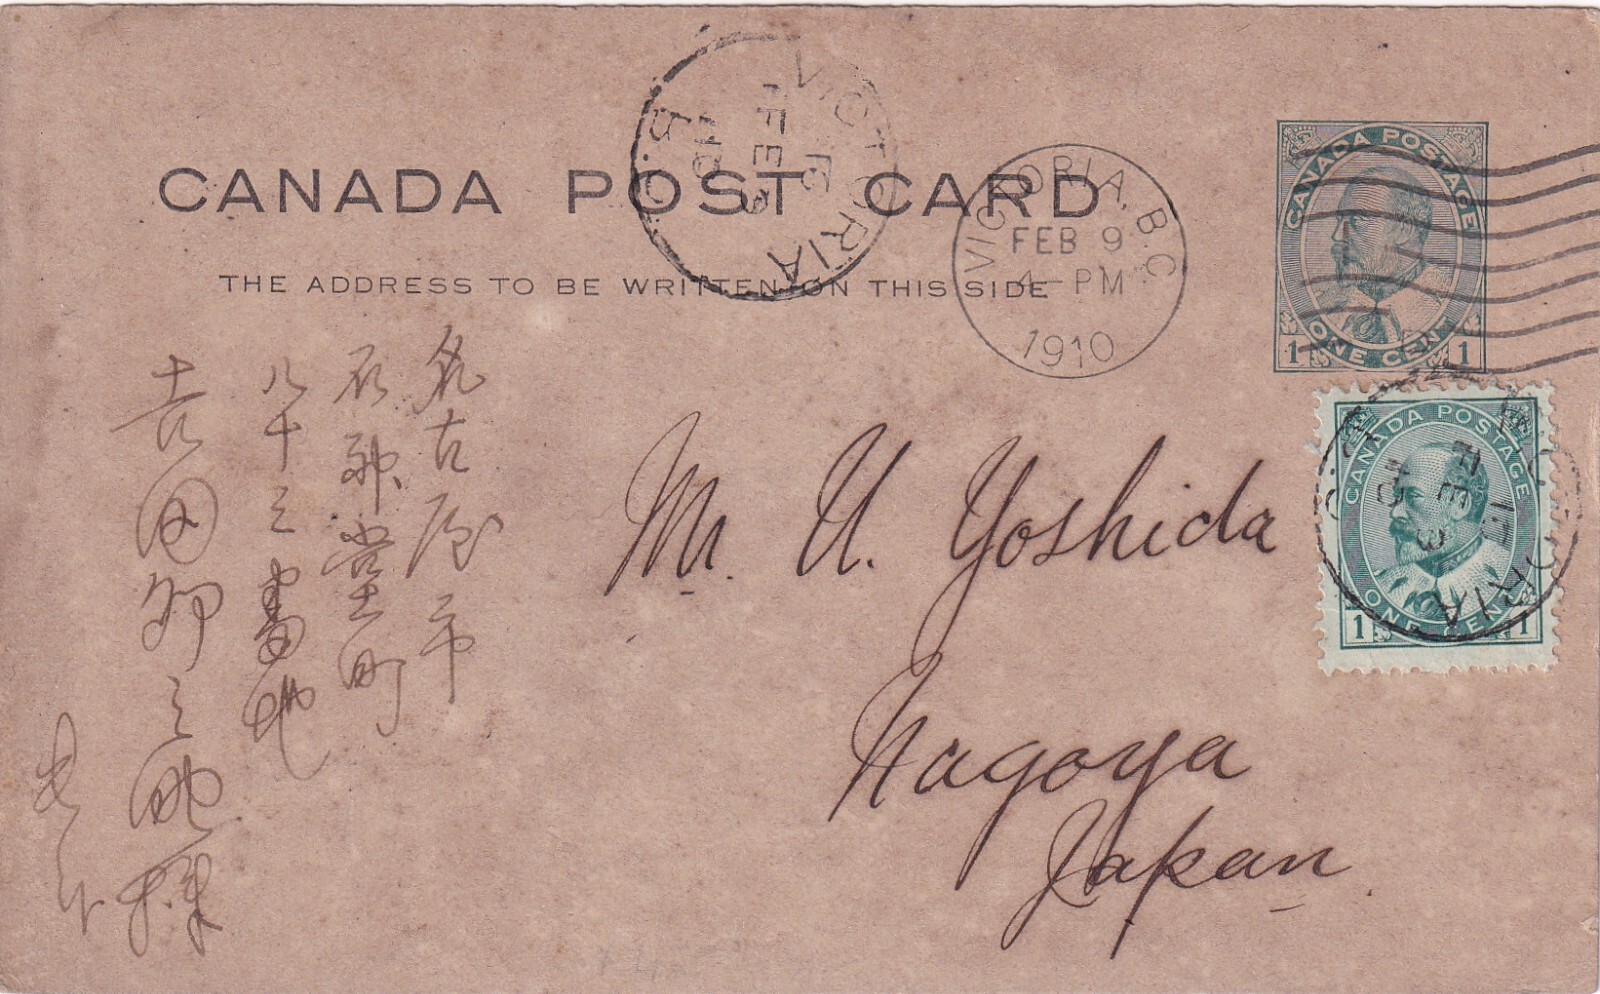 CANADA POST CARD
THE ADDRESS TO BE WRITTEN ON THIS SIDE
VICTORIA
15
FE 9
10
B.C.
VICTORIA, B.C.
FEB 9
4-PM
1910
CANADA POSTAGE
ONE CENT
1 1
CANADA POSTAGE
ONE CENT
1 1
VICTORIA
15
FE
Mr. U. Yoshida
Nagoya
Japan.
名古屋市
町
八十三番地
吉田卯之助様